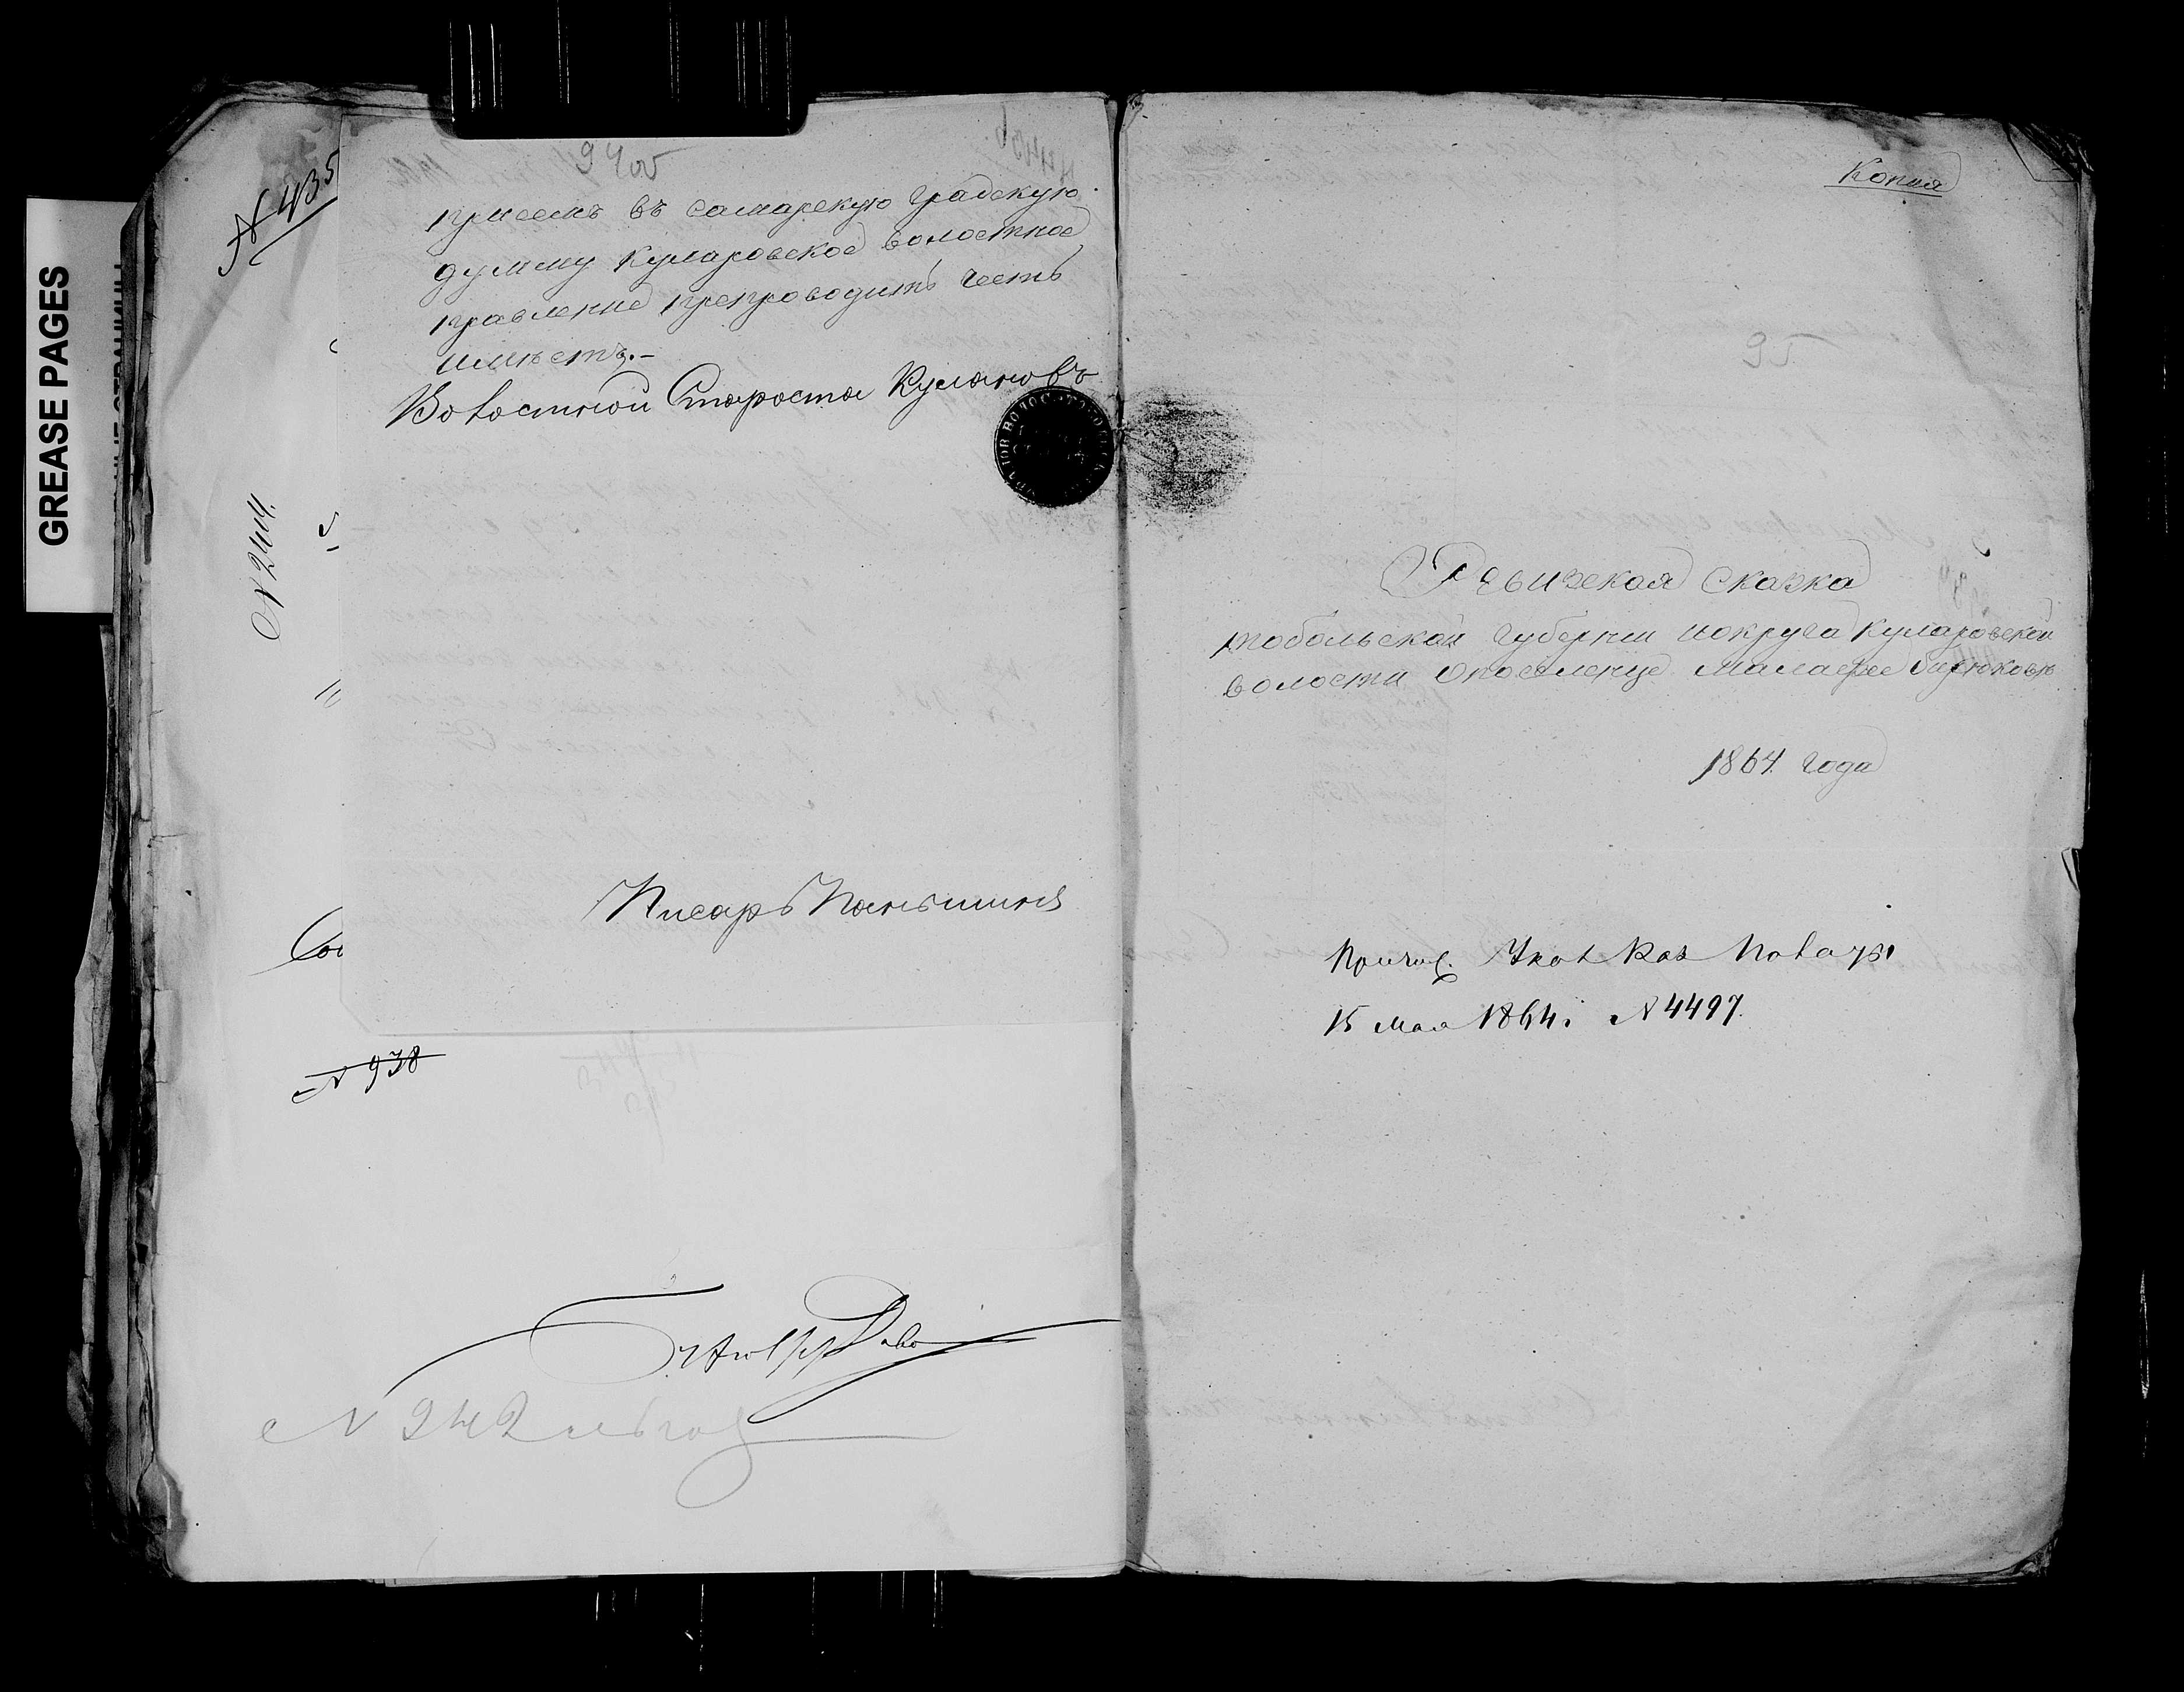 GREASE PAGES
№ 435
94об
при семъ въ самарскую градскую
думму Куларовское волостное
правление препроводить честь
имѣетъ.-
Волостной Староста Кулановъ
№ 244.
Писарь Паньшинъ
№ 938
№ 242
Копия
95
Ревизская Сказка
тобольской губернии и округа Куларовской
волости опоселенце Малафее бирюковѣ
1864 года
Причис. Указ Каз Палаты
15 мая 1864. № 4497.